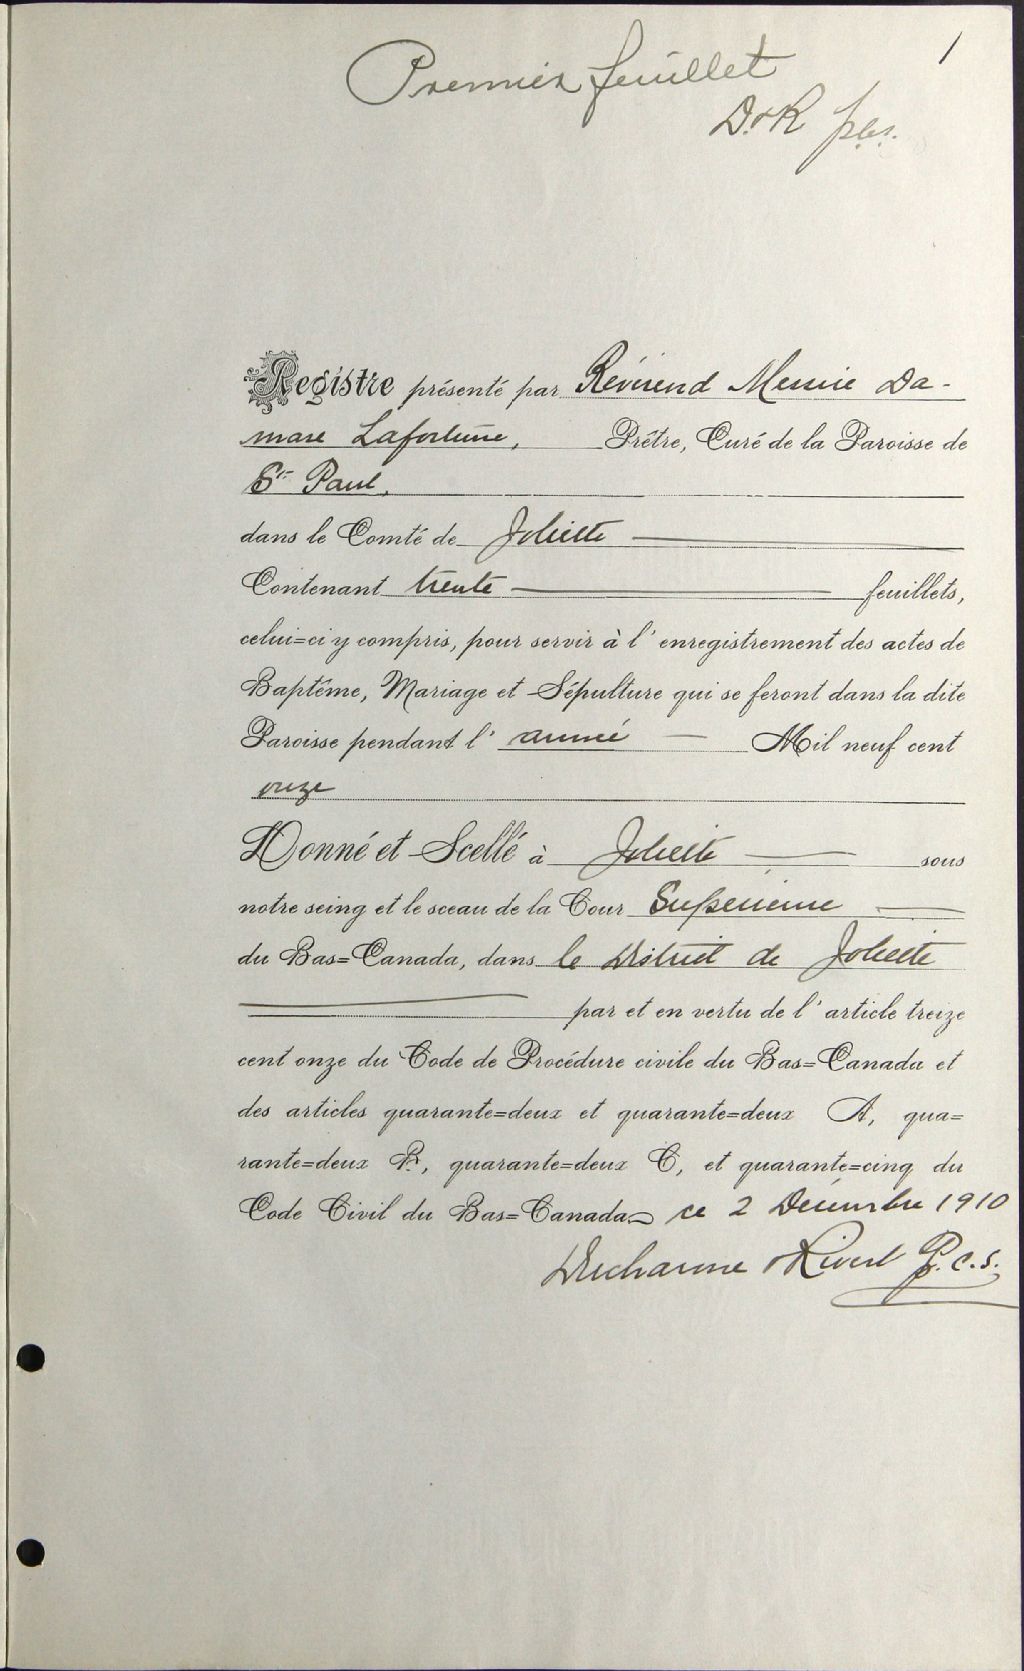 1
Premier feuillet
D. & R
Registre présenté par Révérend Messire Da-
mase Lafortune, Prêtre, Curé de la Paroisse de
St Paul,
dans le Comté de Joliette
Contenant trente feuillets,
celui=ci y compris, pour servir à l'enregistrement des actes de
Baptême, Mariage et Sépulture qui se feront dans la dite
Paroisse pendant l'année Mil neuf cent
onze
Donné et Scellé à Joliette sous
notre seing et le sceau de la Cour Supérieure
du Bas=Canada, dans le District de Joliette
par et en vertu de l'article treize
cent onze du Code de Procédure civile du Bas=Canada et
des articles quarante=deux et quarante=deux A, qua=
rante=deux B, quarante=deux C, et quarante=cinq du
Code Civil du Bas=Canada ce 2 Décembre 1910
Ducharme & Rivest P. c. s.